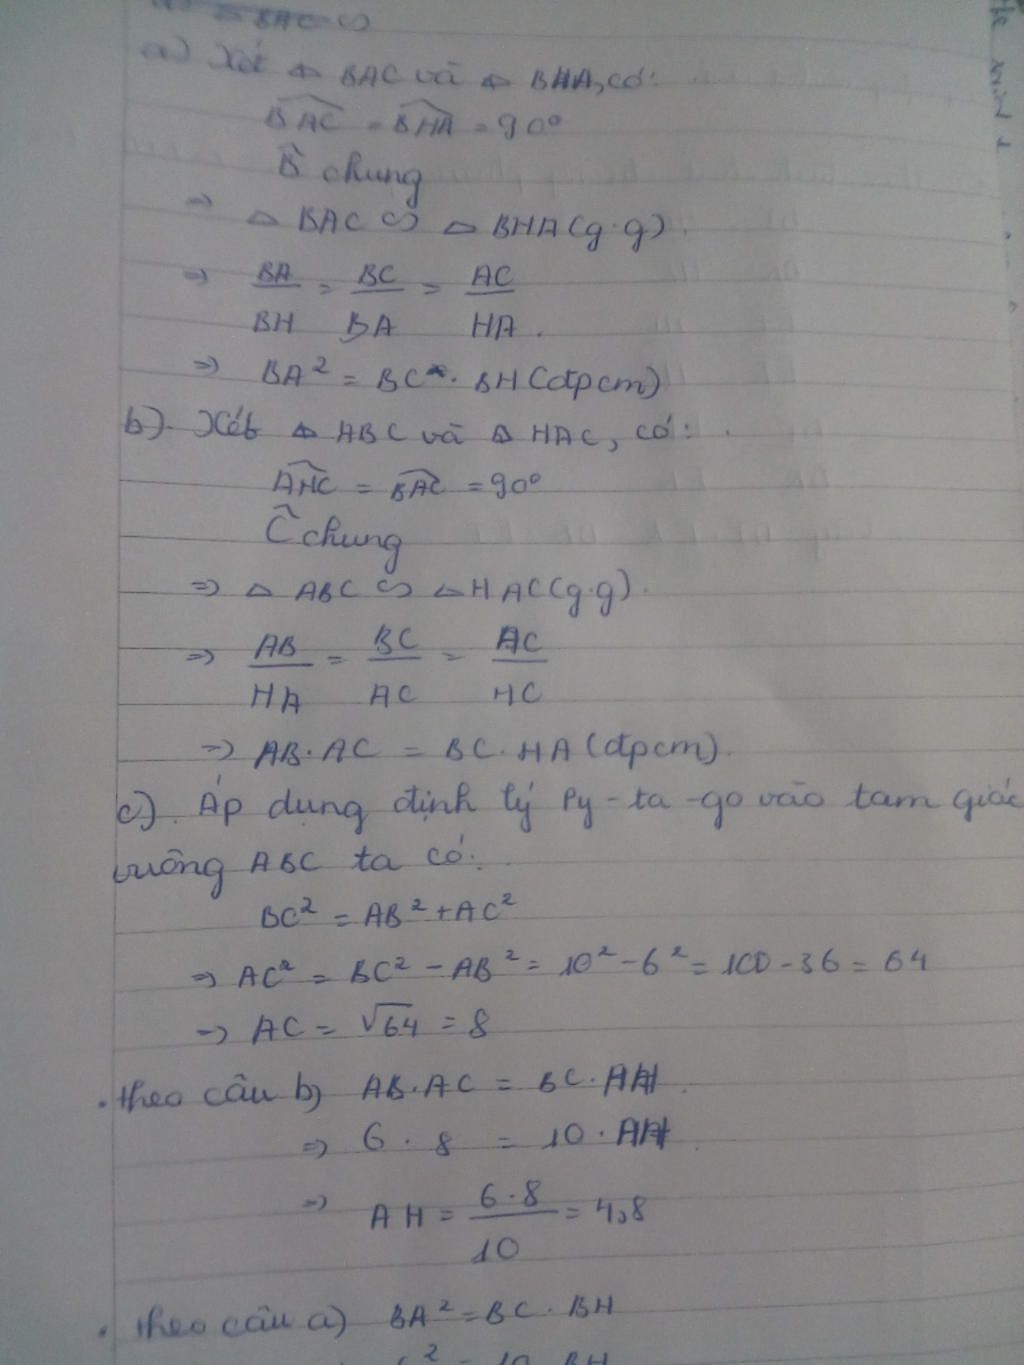 △ BAC ∽
a) Xét △ BAC và △ BHA, có:
\widehat{BAC} = \widehat{BHA} = 90°
B̂ chung
⇒ △ BAC ∽ △ BHA (g.g).
⇒ BA/BH = BC/BA = AC/HA.
⇒ BA² = BC . BH (đpcm)
b). Xét △ ABC và △ HAC, có:
\widehat{AHC} = \widehat{BAC} = 90°
Ĉ chung
⇒ △ ABC ∽ △ HAC (g.g).
⇒ AB/HA = BC/AC = AC/HC
⇒ AB.AC = BC.HA (đpcm).
c). Áp dụng định lý Py-ta-go vào tam giác
vuông ABC ta có:
BC² = AB² + AC²
⇒ AC² = BC² - AB² = 10² - 6² = 100 - 36 = 64
⇒ AC = √64 = 8
. theo câu b) AB.AC = BC.AH.
⇒ 6 . 8 = 10 . AH.
⇒ AH = 6.8/10 = 4,8
. theo câu a) BA² = BC . BH
² = 10 . BH